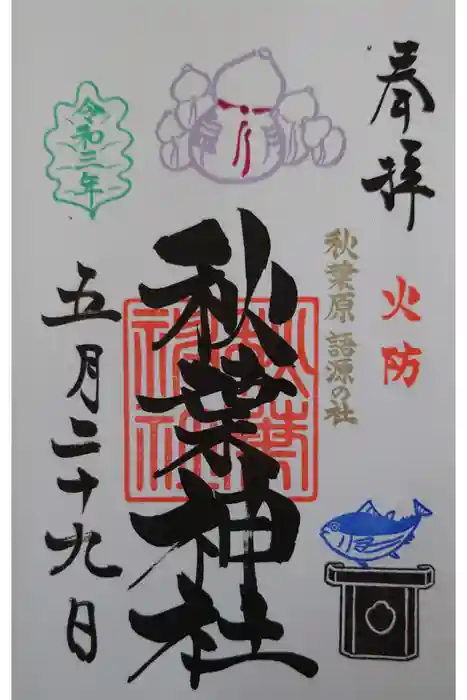 奉拝
火防
秋葉原 語源の社
秋葉神社
秋葉神社
令和三年
五月二十九日